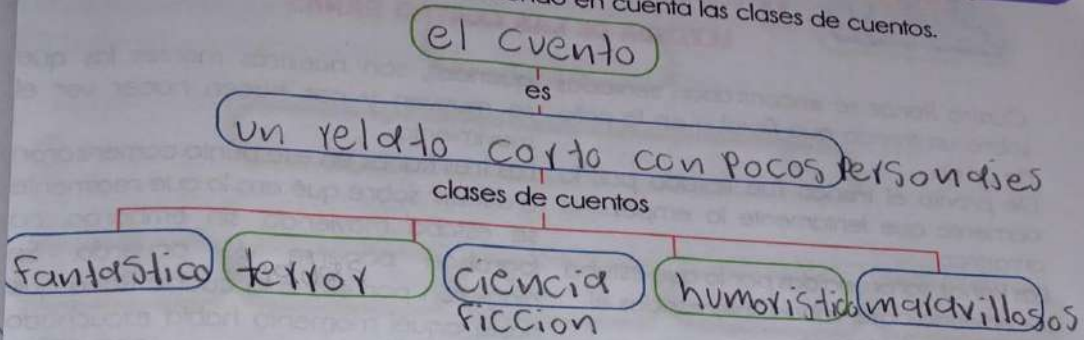 en cuenta las clases de cuentos.
el cuento
es
un relato corto con pocos Personajes
clases de cuentos
fantastico terror ciencia humoristico maravillosos
ficcion